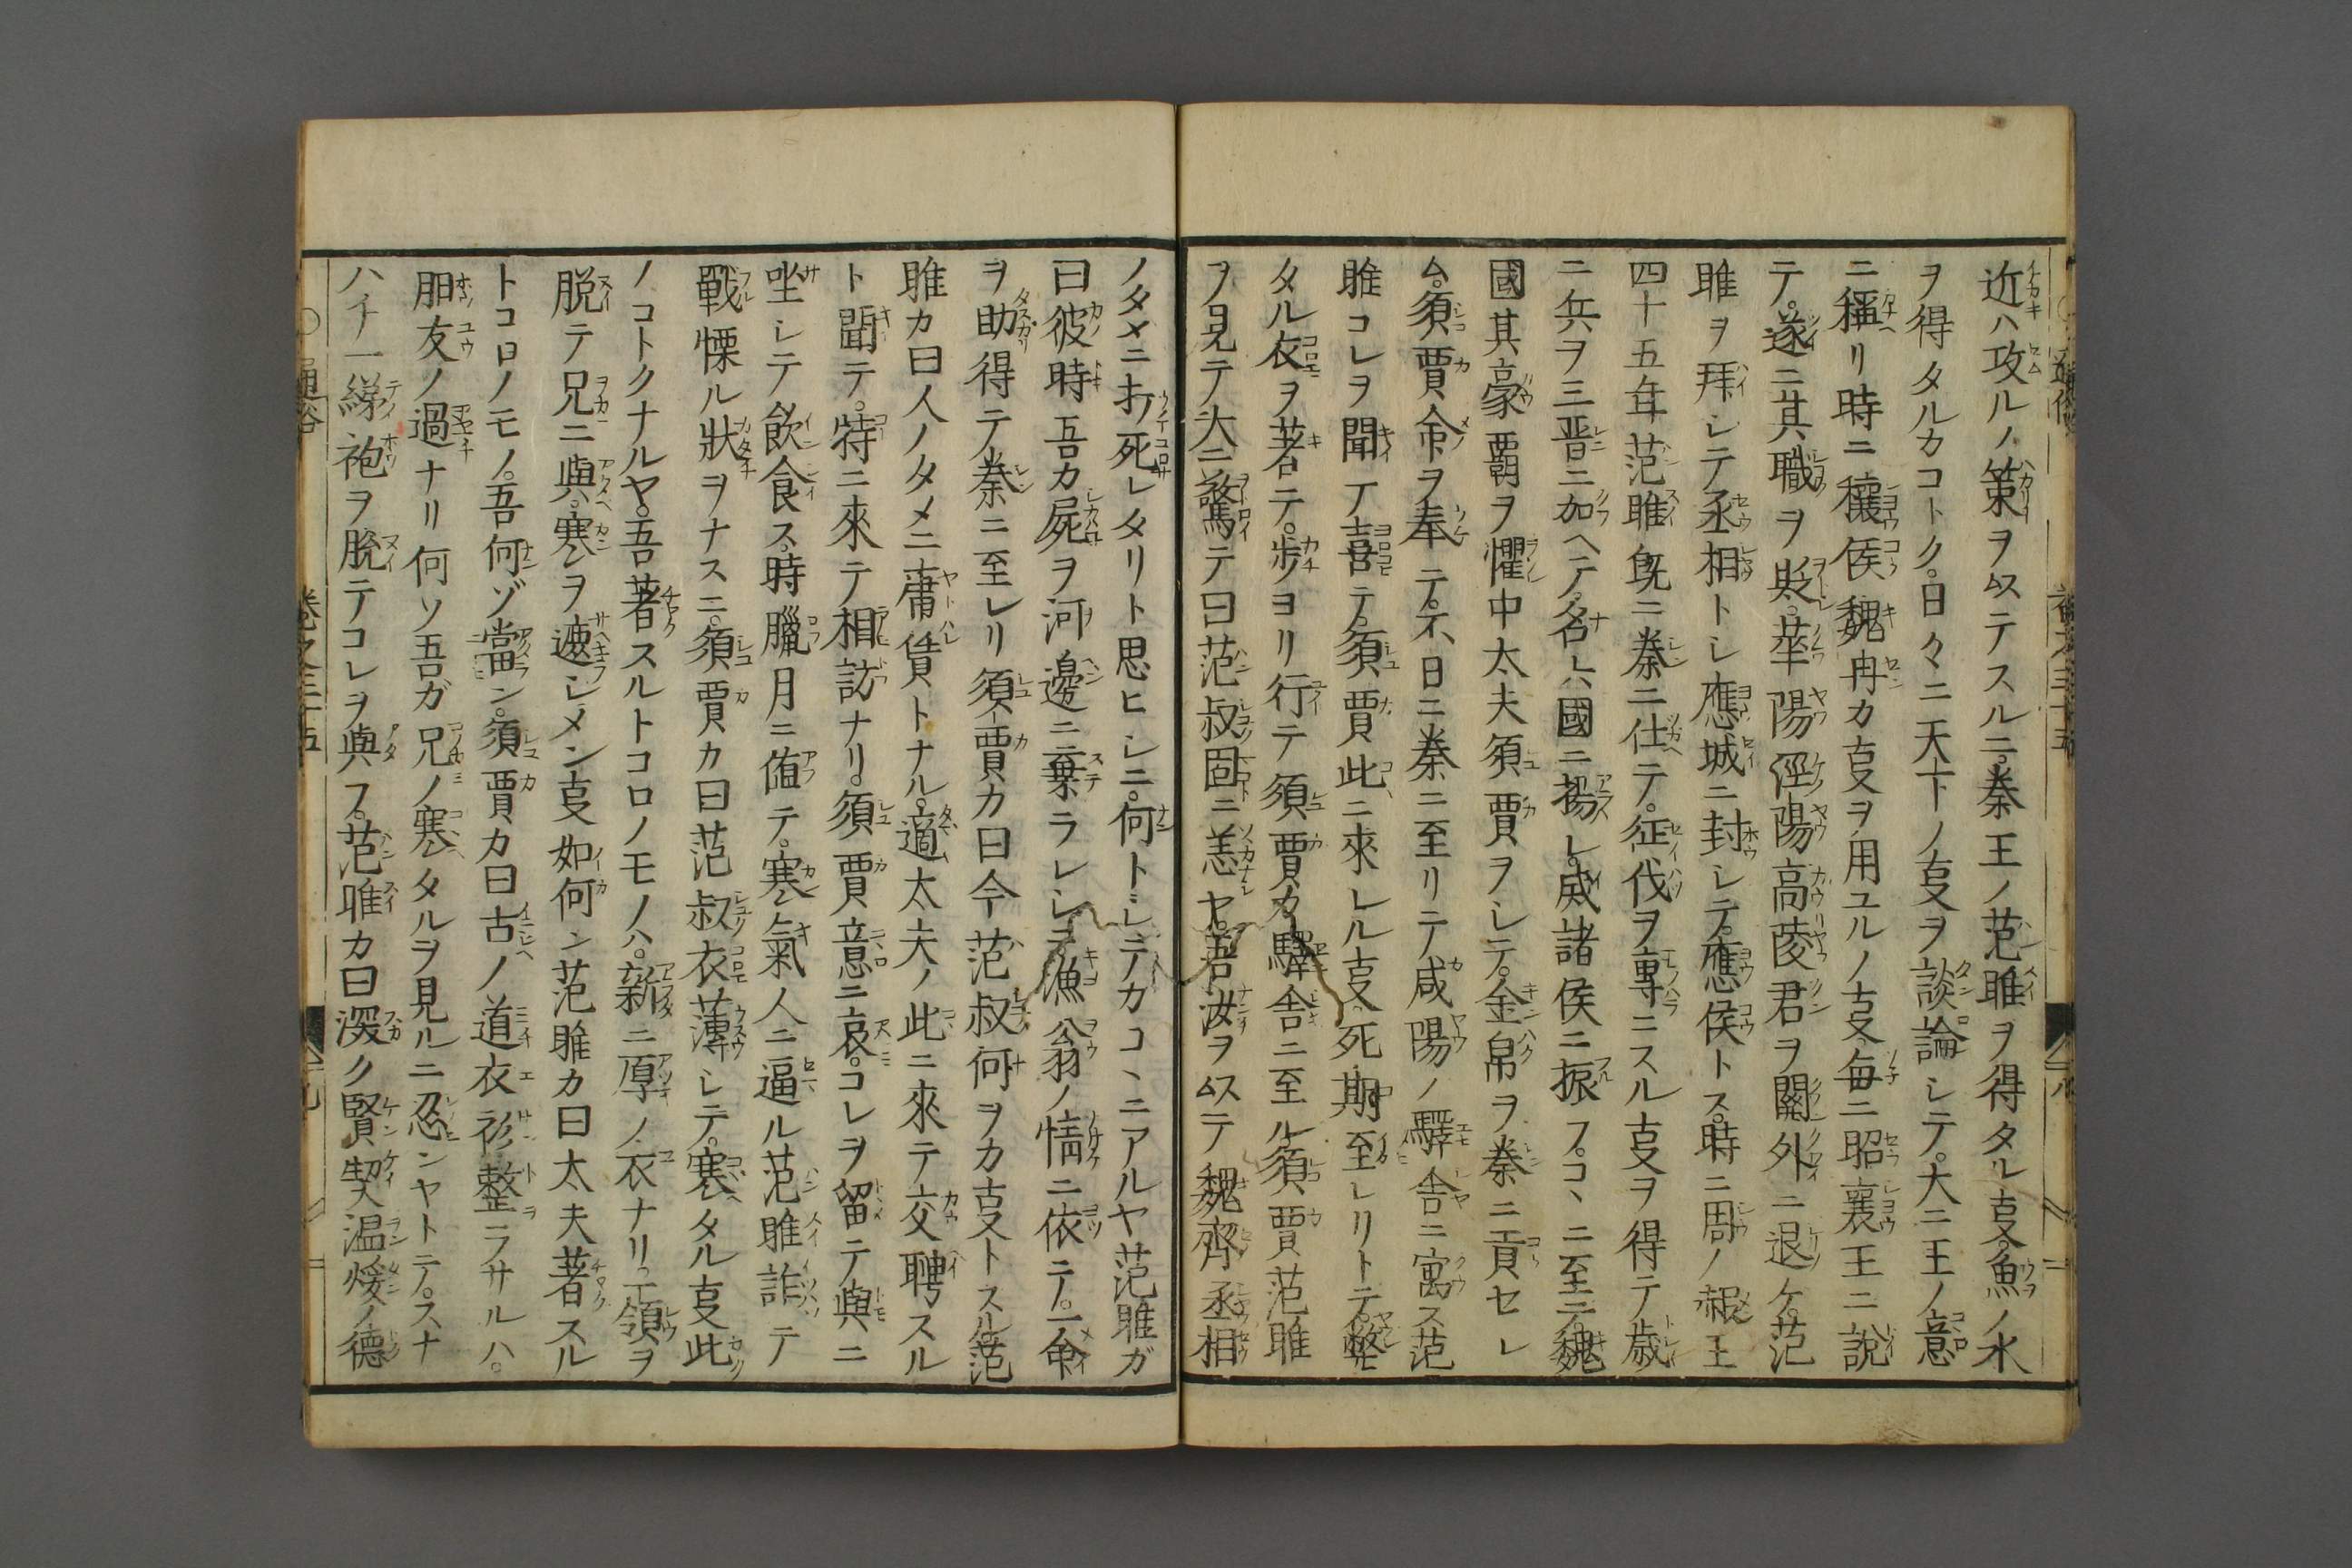 近ハ攻ルノ策ヲ以テスルニ。秦王ノ范雎ヲ得タル叓。魚ノ水
ヲ得タルカコトク。日々ニ天下ノ叓ヲ談論シテ。大ニ王ノ意
ニ稱リ時ニ穰侯魏冉カ叓ヲ用ユルノ叓。毎ニ昭襄王ニ說
テ。遂ニ其職ヲ貶。華陽涇陽高陵君ヲ關外ニ退ケ。范
雎ヲ拜シテ丞相トシ應城ニ封シテ。應侯トス。時ニ周ノ赧王
四十五年范雎旣ニ秦ニ仕テ。征伐ヲ專ニスル叓ヲ得テ歳
ニ兵ヲ三晋ニ加ヘテ。名六國ニ揚レ。威諸侯ニ振フ。コヽニ至テ。魏
國其豪覇ヲ懼中太夫須賈ヲシテ。金帛ヲ秦ニ貢セシ
ム。須賈命ヲ奉テ。不日ニ秦ニ至リテ咸陽ノ驛舎ニ寓ス范
雎コレヲ聞テ喜テ。須賈此ニ來レル叓。死期至レリトテ。弊
タル衣ヲ著テ。歩ヨリ行テ須賈カ驛舎ニ至ル須賈范雎
ヲ見テ大ニ驚テ曰范叔固ニ恙ヤ。吾汝ヲ以テ魏齊丞相
ノタメニ打死レタリト思ヒシニ。何トシテカコヽニアルヤ范雎ガ
曰彼時吾カ屍ヲ河邊ニ棄ラレシニ。漁翁ノ情ニ依テ。一命
ヲ助得テ秦ニ至レリ須賈カ曰今范叔何ヲカ叓トスル范
雎カ曰人ノタメニ庸賃トナル。適太夫ノ此ニ來テ交聘スル
ト聞テ。特ニ來テ相訪ナリ。須賈意ニ哀。コレヲ留テ與ニ
坐シテ飲食ス時臘月ニ値テ。寒氣人ニ逼ル范雎詐テ
戰慄ル狀ヲナスニ。須賈カ曰范叔衣薄シテ。寒タル叓此
ノコトクナルヤ。吾著スルトコロノモノハ。新ニ厚ノ衣ナリ一領ヲ
脱テ兄ニ與。寒ヲ遮シメン叓如何ン范雎カ曰太夫著スル
トコロノモノ。吾何ゾ當ン。須賈カ曰古ノ道衣衫整ニフサルハ。
朋友ノ過ナリ何ソ吾ガ兄ノ寒タルヲ見ルニ忍ンヤトテ。スナ
ハチ一綈袍ヲ脱テコレヲ與フ。范雎カ曰深ク賢契温煖ノ德